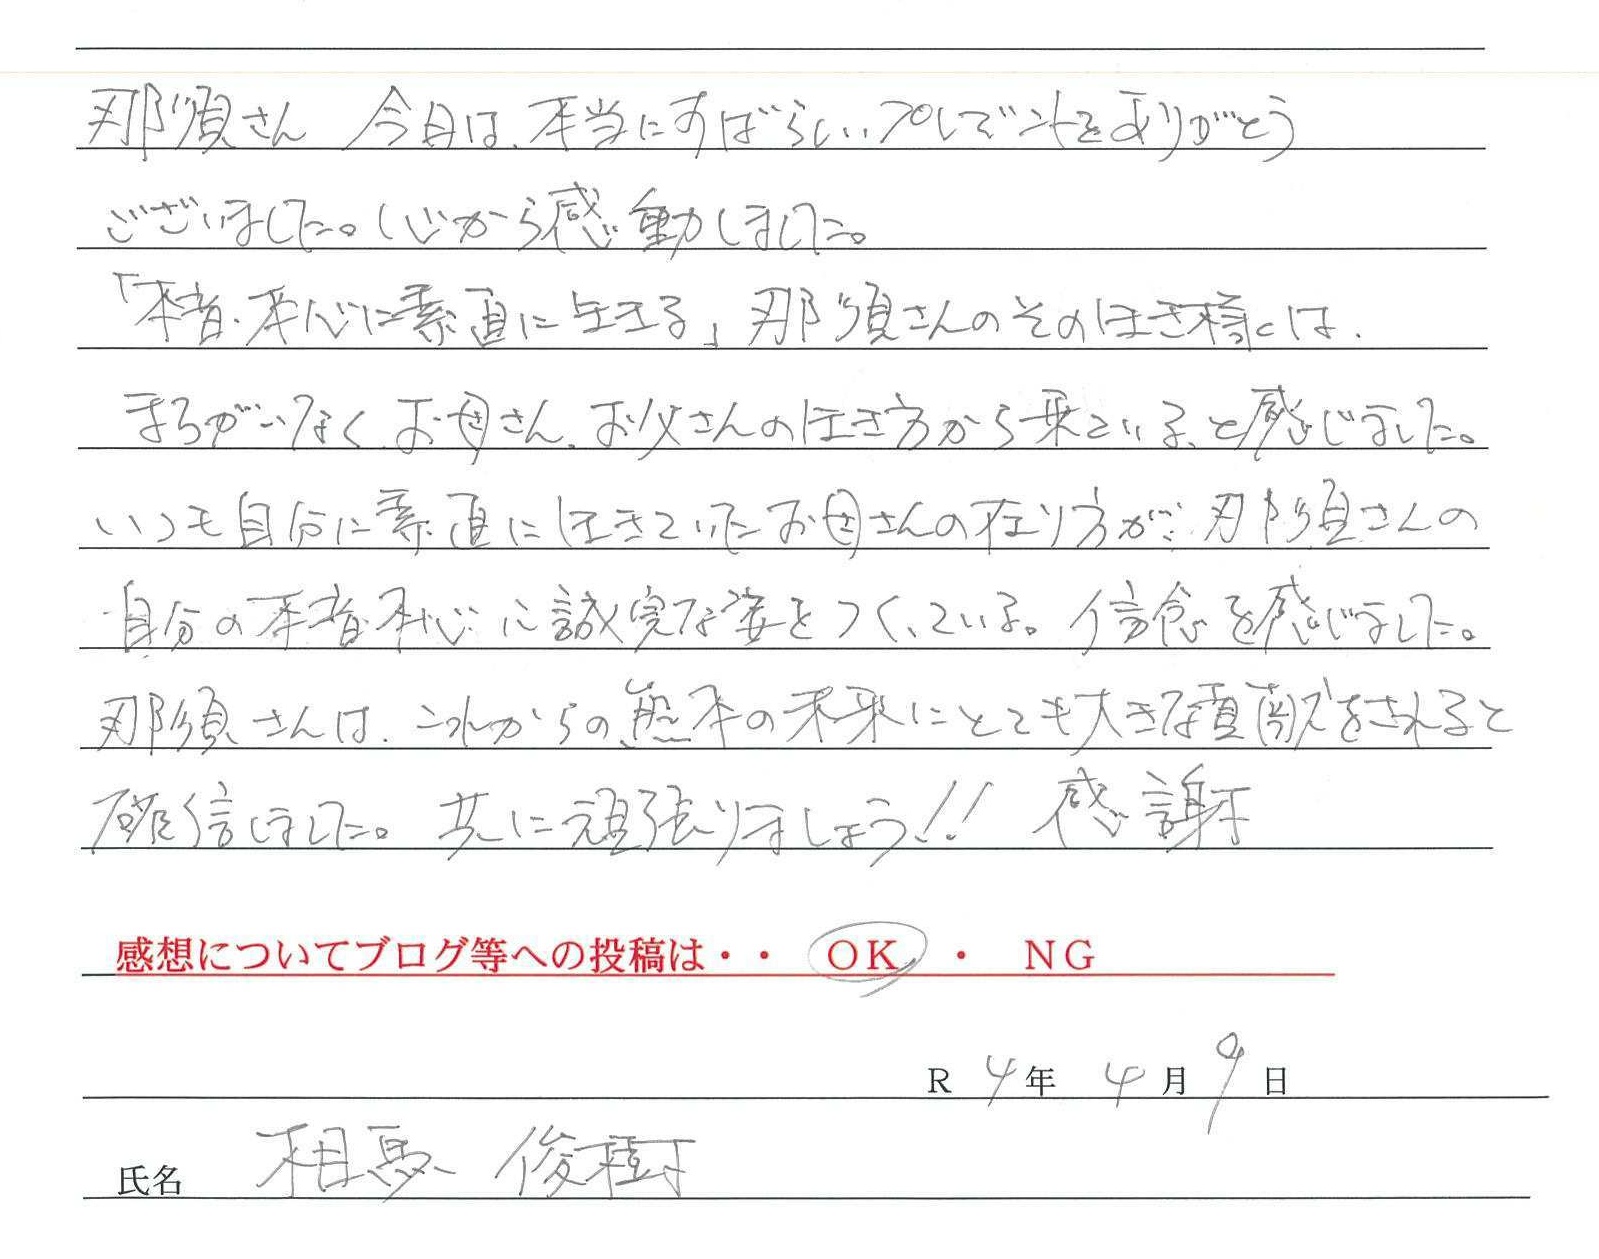 那須さん 今日は、本当にすばらしいプレゼントをありがとう
ございました。心から感動しました。
「本音・本心に素直に生きる」那須さんのその生き様には、
まちがいなく、お母さん、お父さんの生き方から来ている、と感じました。
いつも自分に素直に生きていたお母さんの在り方が、那須さんの
自分の本音・本心に誠実な姿をつくっている。信念を感じました。
那須さんは、これからの熊本の未来にとても大きな貢献をされると
確信しました。共に頑張りましょう!! 感謝
感想についてブログ等への投稿は・・ OK ・ NG
R 4年 4月 9日
氏名 相馬 俊樹